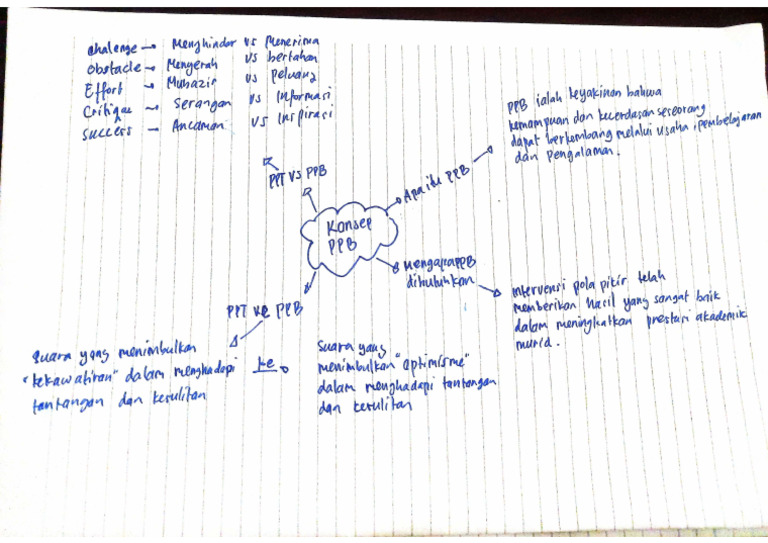 Chalenge → Menghindar vs Menerima
Obstacle → Mengerah vs bertahan
Effort → Mubazir vs Peluang
Critique → Serangan vs Informasi
Success → Ancaman vs Inspirasi
PPT vs PPB
Konsep
PPB
Apa itu PPB
PPB ialah keyakinan bahwa
kemampuan dan kecerdasan seseorang
dapat berkembang melalui usaha, pembelajaran
dan pengalaman.
Mengapa PPB
dibutuhkan
Intervensi pola pikir telah
memberikan hasil yang sangat baik
dalam meningkatkan prestasi akademik
murid.
PPT ke PPB
Suara yang menimbulkan
"kekawatiran" dalam menghadapi
tantangan dan kesulitan
ke
Suara yang
menimbulkan "optimisme"
dalam menghadapi tantangan
dan kesulitan